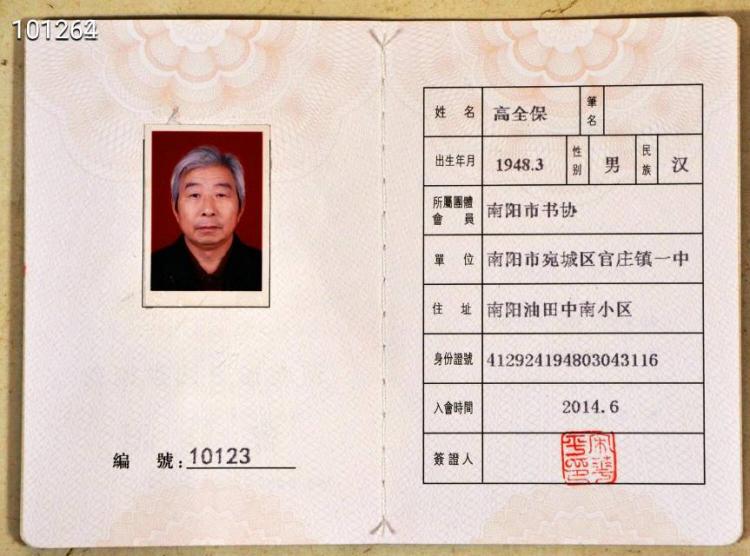 101264
編 號:10123
姓 名 高全保 筆名
出生年月 1948.3 性别 男 民族 汉
所屬團體會員 南阳市书协
單 位 南阳市宛城区官庄镇一中
住 址 南阳油田中南小区
身份證號 412924194803043116
入會時間 2014.6
簽證人